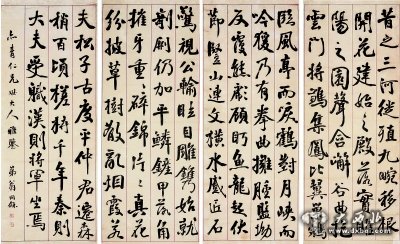 昔之三河徙植九畹移根
開花建始之殿落實睢
陽之園聲含嶰谷曲抱
雲門將鶵集鳳比翼巢鴛
臨風亭而唳鶴對月峽而
吟猨乃有拳曲擁腫盤坳
反覆熊彪顧盼魚龍起伏
節豎山連文橫水蹙匠石
驚視公輸眩目雕鐫始就
剞劂仍加平鱗鏟甲落角
摧牙重重碎錦片片真花
紛披草樹散亂烟霞若
夫松子古度平仲君遷森
梢百頃槎枿千年秦則
大夫受職漢則將軍坐焉
青仁兄世大人雅鑒
弟翁同龢